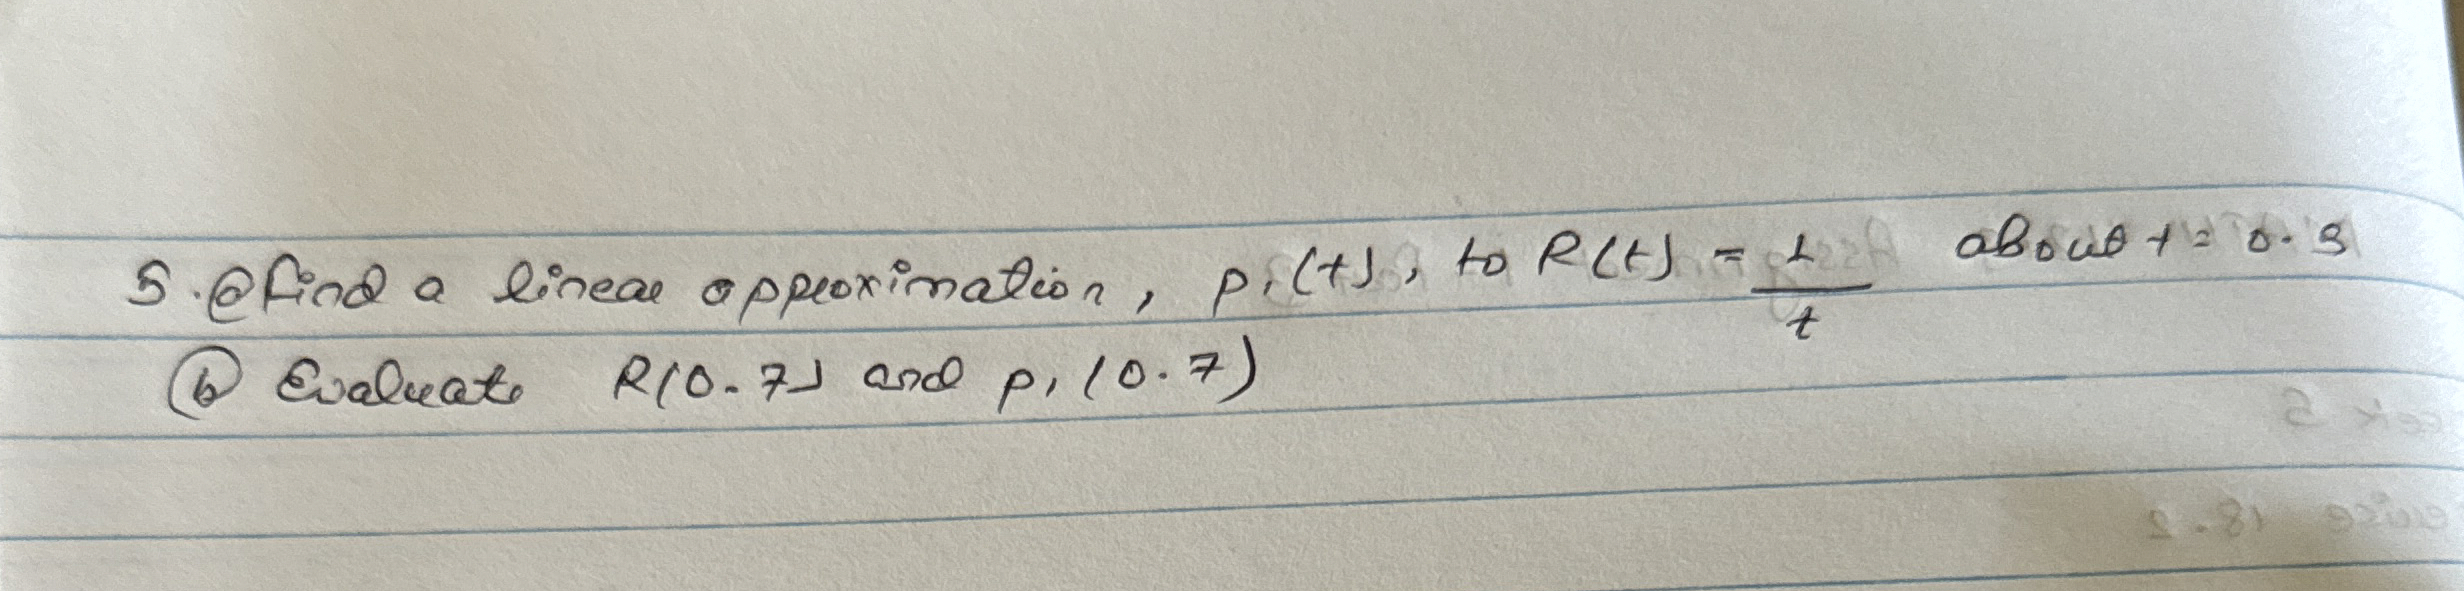 5. (a) find a linear approximation, p₁(t), to R(t) = 1/t about t = 0.5
(b) Evaluate R(0.7) and p₁(0.7)